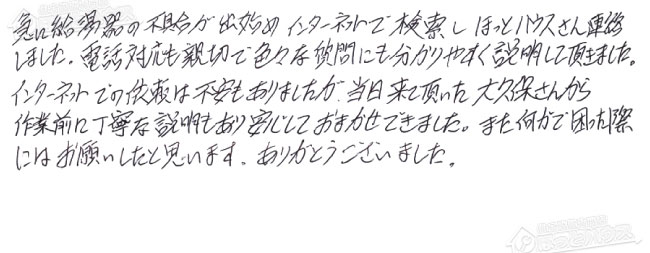 急に給湯器の不具合が出始めインターネットで検索しほっとハウスさん連絡
しました。電話対応も親切で色々な質問にも分かりやすく説明して頂きました。
インターネットでの依頼は不安もありましたが、当日来て頂いた大久保さんから
作業前に丁寧な説明もあり安心しておまかせできました。また何かで困った際
にはお願いしたと思います。ありがとうございました。